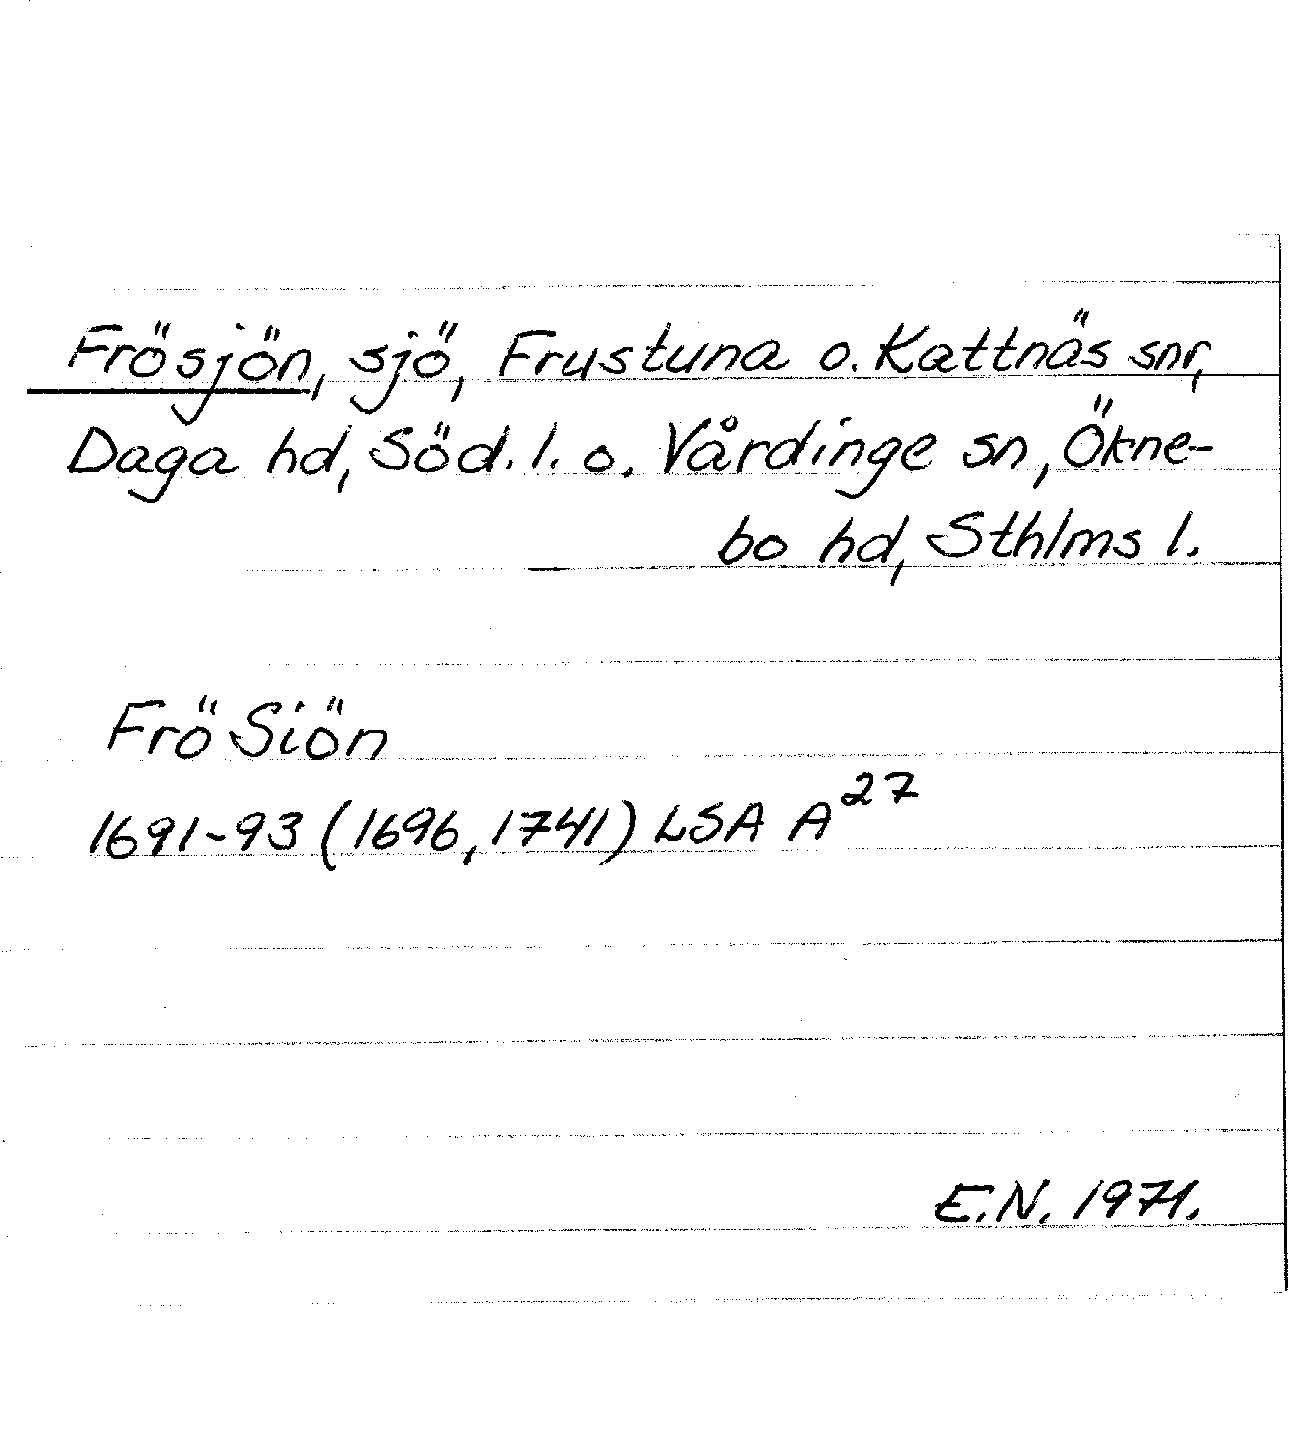 Frösjön, sjö, Frustuna o. Kattnäs snr,
Daga hd, Söd. l. o. Vårdinge sn, Ökne-
bo hd, Sthlms l.
Frö Siön
1691-93 (1696, 1741) LSA A²⁷
E.N. 1971.